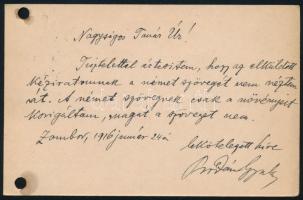 Nagyságos Tanár Úr!
Tisztelettel értesítem, hogy az elküldött
kéziratomnak a német szövegét nem néztem
át. A német szövegnek csak a növényeit
korrigáltam, magát a szöveget nem.
Zombor, 1916 január 24én
lekötelezett híve